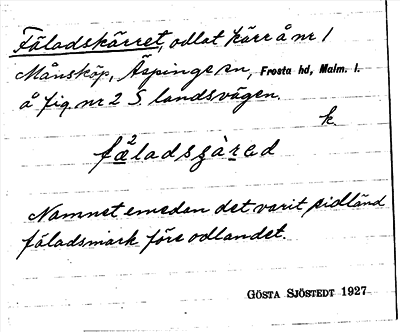 Fäladskärret, odlat kärr å nr 1
Månsköp, Äspinge sn, Frosta hd, Malm. l.
å fig nr 2 S landsvägen.
k.
fæ²ladsʒàrəd
Namnet emedan det varit sidländ
fäladsmark före odlandet.
GÖSTA SJÖSTEDT 1927